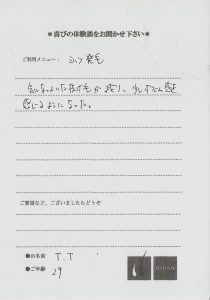 ＊喜びの体験談をお聞かせ下さい＊
ご利用メニュー： シェフ発毛
気になっていた抜け毛が減り、
感じるようになった。
ご要望など、ございましたらどうぞ
●お名前 T.T
●ご年齢 29